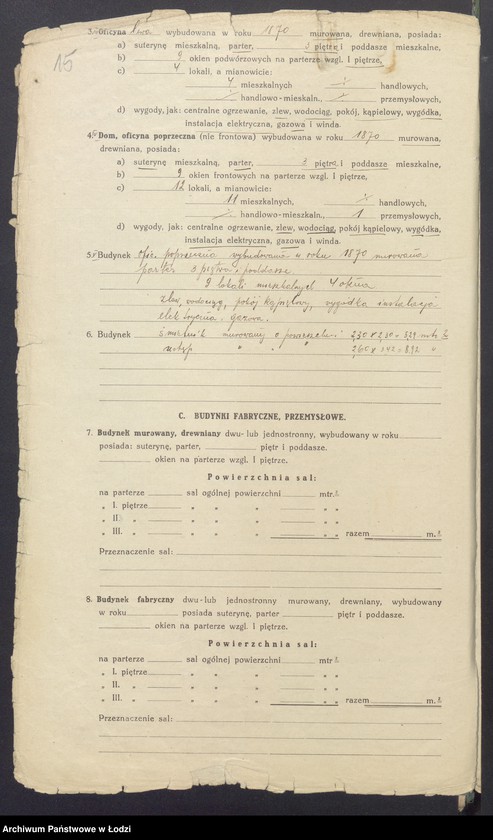 15
3. Oficyna wybudowana w roku 1870 murowana, drewniana, posiada:
a) suterynę mieszkalną, parter, 3 piętra i poddasze mieszkalne,
b) 9 okien podwórzowych na parterze wzgl. I piętrze,
c) 4 lokali, a mianowicie:
4 mieszkalnych handlowych,
handlowo-mieszkaln., przemysłowych,
d) wygody, jak: centralne ogrzewanie, zlew, wodociąg, pokój, kąpielowy, wygódka,
instalacja elektryczna, gazowa i winda.
4. Dom, oficyna poprzeczna (nie frontowa) wybudowana w roku 1870 murowana,
drewniana, posiada:
a) suterynę mieszkalną, parter, 3 piętra i poddasze mieszkalne,
b) 9 okien frontowych na parterze wzgl. I piętrze,
c) 12 lokali, a mianowicie:
11 mieszkalnych, handlowych,
handlowo-mieszkaln., 1 przemysłowych,
d) wygody, jak: centralne ogrzewanie, zlew, wodociąg, pokój kąpielowy, wygódka,
instalacja elektryczna, gazowa i winda.
5. Budynek ofic. poprzeczna wybudowana w roku 1870 murowana
parter 3 piętra i poddasze
9 lokali mieszkalnych 4 okna
zlew, wodociąg, pokój kąpielowy, wygódka instalacja
elektryczna i gazowa.
6. Budynek śmietnik murowany o powierzchni 2,30 x 2,30 = 5,29 mtr
ustęp " " " 2,60 x 3,42 = 8,92 "
C. BUDYNKI FABRYCZNE, PRZEMYSŁOWE.
7. Budynek murowany, drewniany dwu- lub jednostronny, wybudowany w roku
posiada: suterynę, parter, piętr i poddasze.
okien na parterze wzgl. I piętrze.
Powierzchnia sal:
na parterze sal ogólnej powierzchni mtr.²
„ I. piętrze „ „ „ „ „
„ II. „ „ „ „ „ „
„ III. „ „ „ „ „ „ razem m.²
Przeznaczenie sal:
8. Budynek fabryczny dwu-lub jednostronny murowany, drewniany, wybudowany
w roku posiada suterynę, parter piętr i poddasze.
okien na parterze wzgl. I piętrze.
Powierzchnia sal:
na parterze sal ogólnej powierzchni mtr.²
„ I. piętrze „ „ „ „ „
„ II. „ „ „ „ „ „
„ III. „ „ „ „ „ „ razem m.²
Przeznaczenie sal:
Archiwum Państwowe w Łodzi